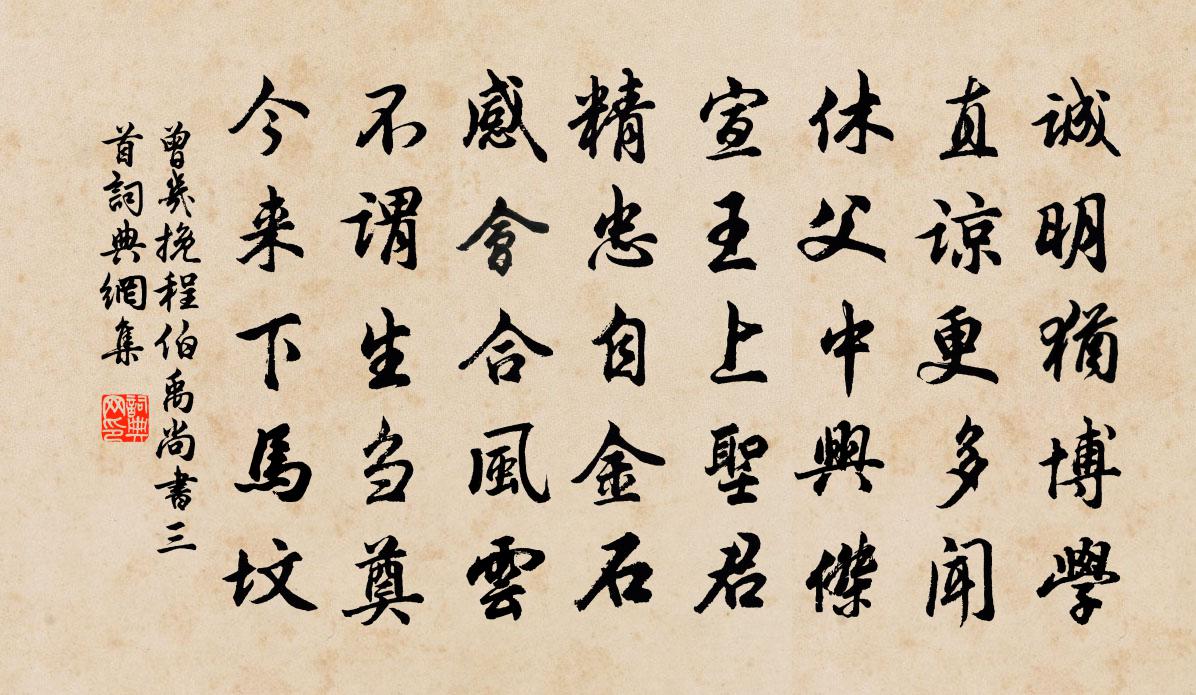 誠明猶博學
直諒更多聞
休父中興傑
宣王上聖君
精忠自金石
感會合風雲
不謂生芻奠
今来下馬墳
曾幾挽程伯禹尚書三
首詞典網集
詞典
网印